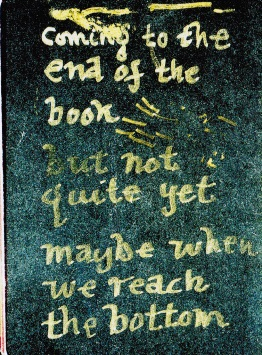 coming to the
end of the
book
but not
quite yet
maybe when
we reach
the bottom